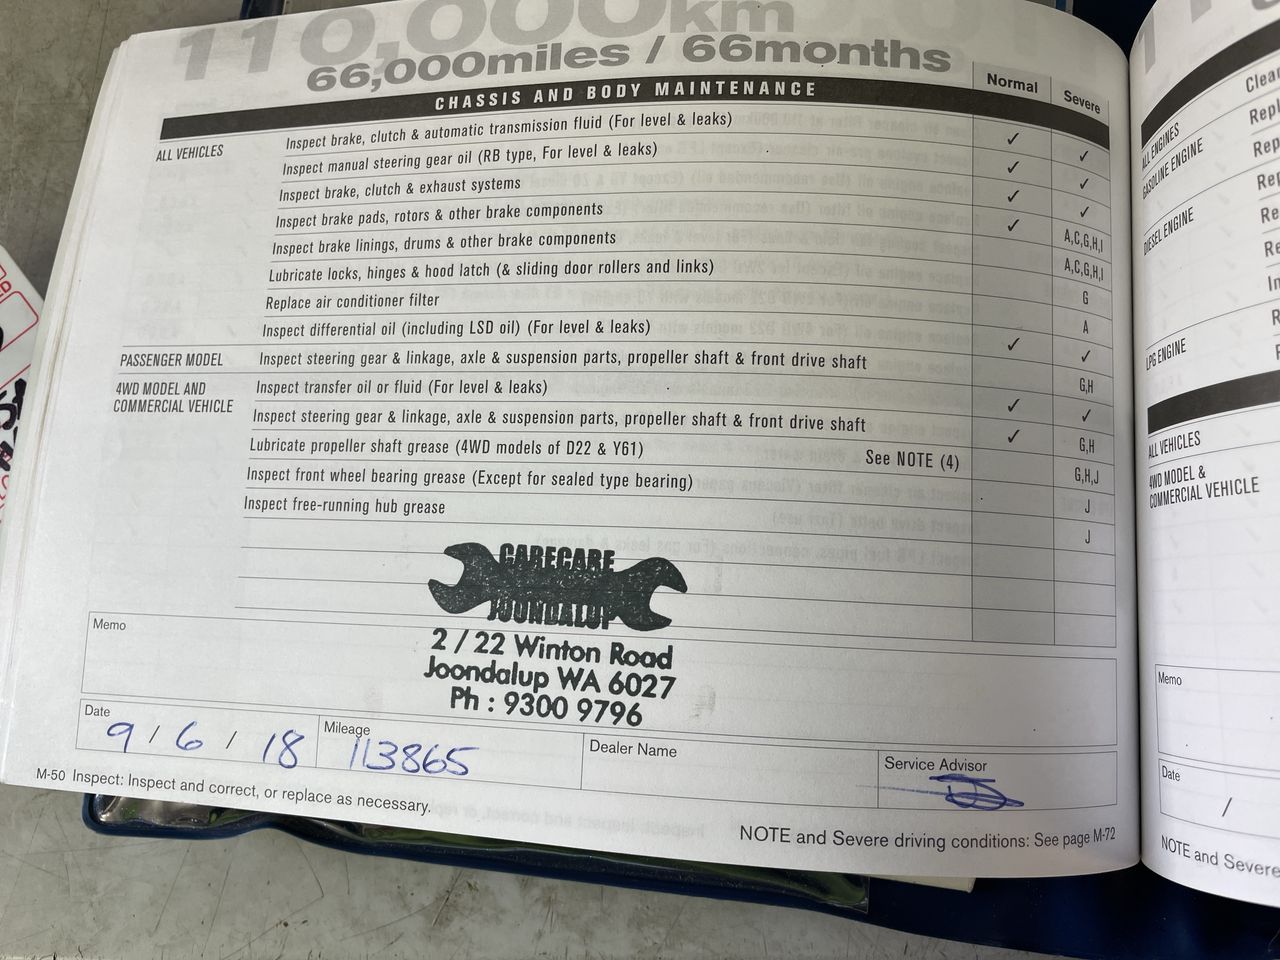 110,000km
66,000miles / 66months
Normal Severe
CHASSIS AND BODY MAINTENANCE
ALL VEHICLES Inspect brake, clutch & automatic transmission fluid (For level & leaks) ✓ ✓
Inspect manual steering gear oil (RB type, For level & leaks) ✓ ✓
Inspect brake, clutch & exhaust systems ✓ ✓
Inspect brake pads, rotors & other brake components ✓ A,C,G,H,I
Inspect brake linings, drums & other brake components A,C,G,H,I
Lubricate locks, hinges & hood latch (& sliding door rollers and links) G
Replace air conditioner filter A
Inspect differential oil (including LSD oil) (For level & leaks) ✓ ✓
PASSENGER MODEL Inspect steering gear & linkage, axle & suspension parts, propeller shaft & front drive shaft G,H
4WD MODEL AND COMMERCIAL VEHICLE Inspect transfer oil or fluid (For level & leaks) ✓ ✓
Inspect steering gear & linkage, axle & suspension parts, propeller shaft & front drive shaft ✓ G,H
Lubricate propeller shaft grease (4WD models of D22 & Y61) See NOTE (4) G,H,J
Inspect front wheel bearing grease (Except for sealed type bearing) J
Inspect free-running hub grease J
CARECARE
JOONDALUP
2 / 22 Winton Road
Joondalup WA 6027
Ph : 9300 9796
Memo
Date 9 / 6 / 18 Mileage 113865 Dealer Name Service Advisor
M-50 Inspect: Inspect and correct, or replace as necessary.
NOTE and Severe driving conditions: See page M-72
ALL ENGINES
GASOLINE ENGINE
DIESEL ENGINE
LPG ENGINE
ALL VEHICLES
4WD MODEL &
COMMERCIAL VEHICLE
Memo
Date
/
NOTE and Severe